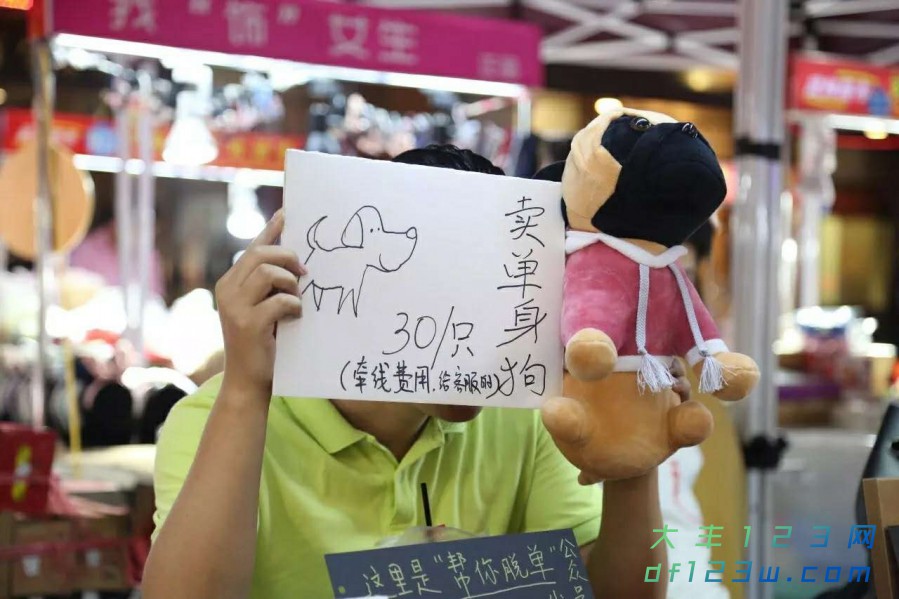 我"饰"女生
卖单身狗
30/只
(牵线费用,给客服的)
这里是"帮你脱单"公
大丰123网
df123w.com